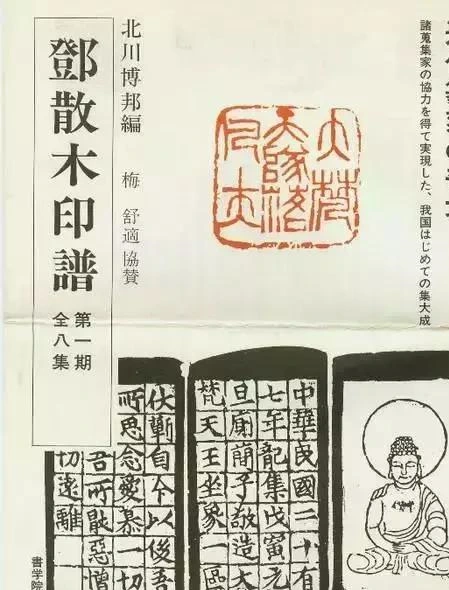 諸蒐集家の協力を得て実現した、我国はじめての集大成
北川博邦編
梅 舒適 協賛
鄧散木印譜
第一期
全八集
中華民國三十有
七年龍集戊寅元
旦廁簡子敬造大
梵天王坐象一區
伏蘄自今以後吾
所思念愛慕一切
吾所厭惡憎
切遠離
書学院